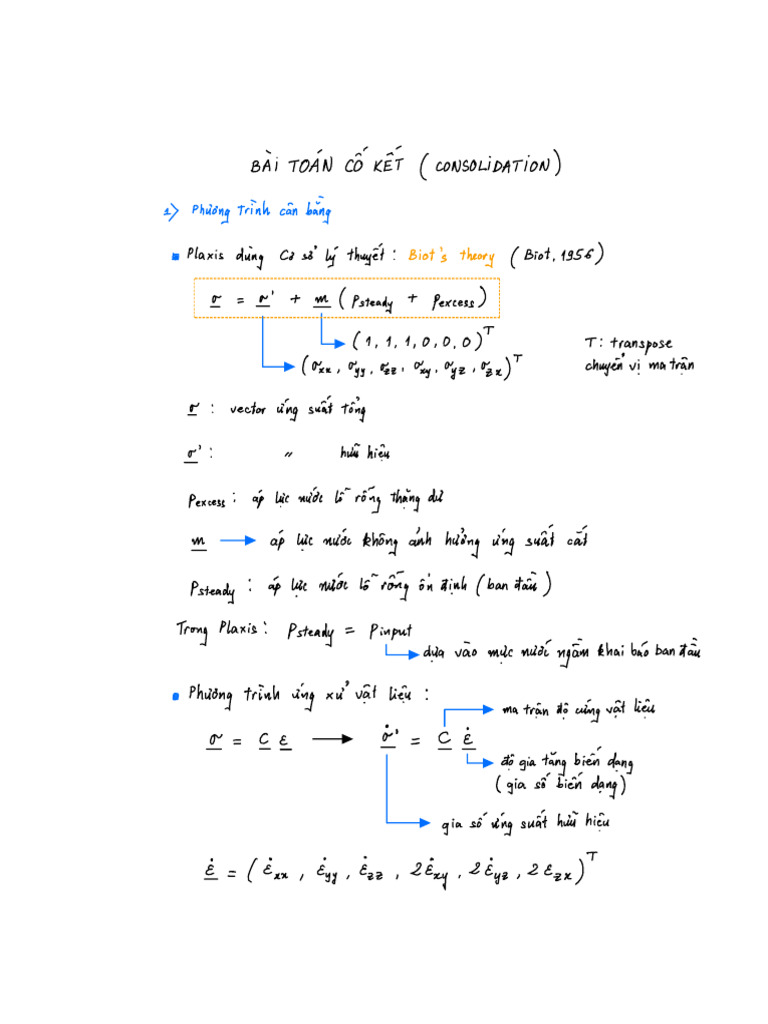 BÀI TOÁN CỐ KẾT (CONSOLIDATION)
1) Phương trình cân bằng
Plaxis dùng Cơ sở lý thuyết: Biot's theory (Biot, 1956)
σ = σ' + m (Psteady + Pexcess)
(1, 1, 1, 0, 0, 0)^T
T: transpose
(σxx, σyy, σzz, σxy, σyz, σzx)^T
chuyển vị ma trận
σ: vector ứng suất tổng
σ': " hữu hiệu
Pexcess: áp lực nước lỗ rỗng thặng dư
m → áp lực nước không ảnh hưởng ứng suất cắt
Psteady: áp lực nước lỗ rỗng ổn định (ban đầu)
Trong Plaxis: Psteady = Pinput
dựa vào mực nước ngầm khai báo ban đầu
Phương trình ứng xử vật liệu:
ma trận độ cứng vật liệu
σ = C ε → σ̇' = C ε̇
độ gia tăng biến dạng
(gia số biến dạng)
gia số ứng suất hữu hiệu
ε̇ = (ε̇xx, ε̇yy, ε̇zz, 2ε̇xy, 2ε̇yz, 2εzx)^T